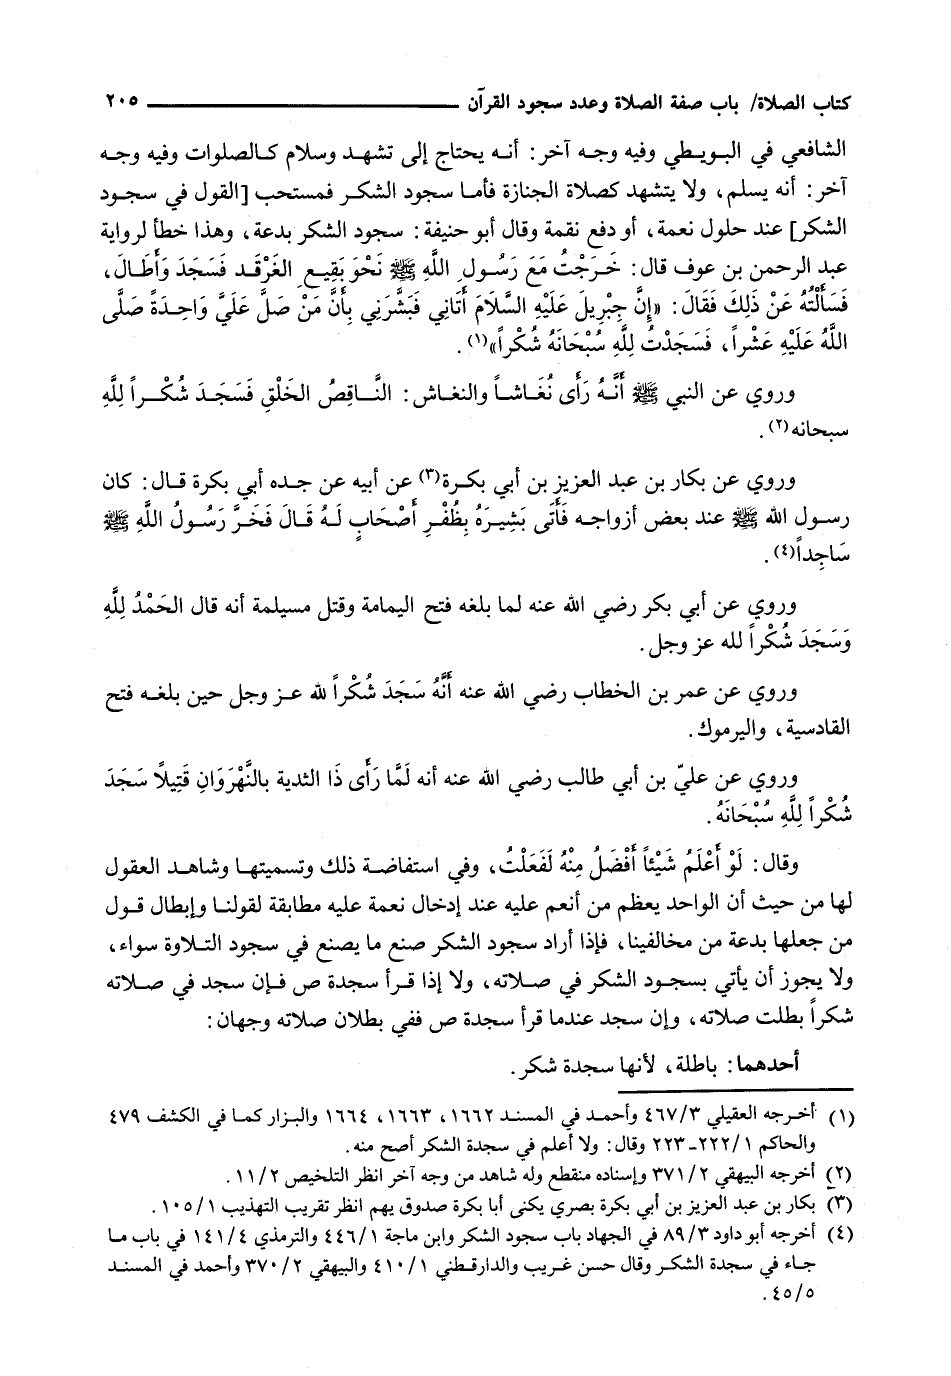 كتاب الصلاة/ باب صفة الصلاة وعدد سجود القرآن ٢٠٥
الشافعي في البويطي وفيه وجه آخر: أنه يحتاج إلى تشهد وسلام كالصلوات وفيه وجه
آخر: أنه يسلم، ولا يتشهد كصلاة الجنازة فأما سجود الشكر فمستحب [القول في سجود
الشكر] عند حلول نعمة، أو دفع نقمة وقال أبو حنيفة: سجود الشكر بدعة، وهذا خطأ لرواية
عبد الرحمن بن عوف قال: خَرَجْتُ مَعَ رَسُولِ اللَّهِ ﷺ نَحْوَ بَقِيعِ الغَرْقَدِ فَسَجَدَ وَأَطَالَ،
فَسَأَلْتُهُ عَنْ ذَلِكَ فَقَالَ: «إِنَّ جِبْرِيلَ عَلَيْهِ السَّلَامَ أَتَانِي فَبَشَّرَنِي بِأَنَّ مَنْ صَلَّ عَلَيَّ وَاحِدَةً صَلَّى
اللَّهُ عَلَيْهِ عَشْراً، فَسَجَدْتُ لِلَّهِ سُبْحَانَهُ شُكْراً»(١).
وروي عن النبي ﷺ أَنَّهُ رَأَى نُغَاشاً والنغاش: النَّاقِصُ الخَلْقِ فَسَجَدَ شُكْراً لِلَّهِ
سبحانه(٢).
وروي عن بكار بن عبد العزيز بن أبي بكرة(٣) عن أبيه عن جده أبي بكرة قال: كان
رسول الله ﷺ عند بعض أزواجه فَأَتَى بَشِيرَهُ بِظُفْرِ أَصْحَابٍ لَهُ قَالَ فَخَرَّ رَسُولُ اللَّهِ ﷺ
سَاجِداً(٤).
وروي عن أبي بكر رضي الله عنه لما بلغه فتح اليمامة وقتل مسيلمة أنه قال الحَمْدُ لِلَّهِ
وَسَجَدَ شُكْراً لله عز وجل.
وروي عن عمر بن الخطاب رضي الله عنه أَنَّهُ سَجَدَ شُكْراً لله عز وجل حين بلغه فتح
القادسية، واليرموك.
وروي عن عليّ بن أبي طالب رضي الله عنه أنه لَمَّا رَأَى ذَا الثدية بالنَّهْرَوَانِ قَتِيلًا سَجَدَ
شُكْراً لِلَّهِ سُبْحَانَهُ.
وقال: لَوْ أَعْلَمُ شَيْئاً أَفْضَلُ مِنْهُ لَفَعَلْتُ، وفي استفاضة ذلك وتسميتها وشاهد العقول
لها من حيث أن الواحد يعظم من أنعم عليه عند إدخال نعمة عليه مطابقة لقولنا وإبطال قول
من جعلها بدعة من مخالفينا، فإذا أراد سجود الشكر صنع ما يصنع في سجود التلاوة سواء،
ولا يجوز أن يأتي بسجود الشكر في صلاته، ولا إذا قرأ سجدة ص فإن سجد في صلاته
شكراً بطلت صلاته، وإن سجد عندما قرأ سجدة ص ففي بطلان صلاته وجهان:
أحدهما: باطلة، لأنها سجدة شكر.
(١) أخرجه العقيلي ٤٦٧/٣ وأحمد في المسند ١٦٦٢، ١٦٦٣، ١٦٦٤ والبزار كما في الكشف ٤٧٩
والحاكم ٢٢٢/١ـ ٢٢٣ وقال: ولا أعلم في سجدة الشكر أصح منه.
(٢) أخرجه البيهقي ٣٧١/٢ وإسناده منقطع وله شاهد من وجه آخر انظر التلخيص ١١/٢.
(٣) بكار بن عبد العزيز بن أبي بكرة بصري يكنى أبا بكرة صدوق يهم انظر تقريب التهذيب ١٠٥/١.
(٤) أخرجه أبو داود ٨٩/٣ في الجهاد باب سجود الشكر وابن ماجة ٤٤٦/١ والترمذي ١٤١/٤ في باب ما
جاء في سجدة الشكر وقال حسن غريب والدارقطني ٤١٠/١ والبيهقي ٣٧٠/٢ وأحمد في المسند
٤٥/٥.